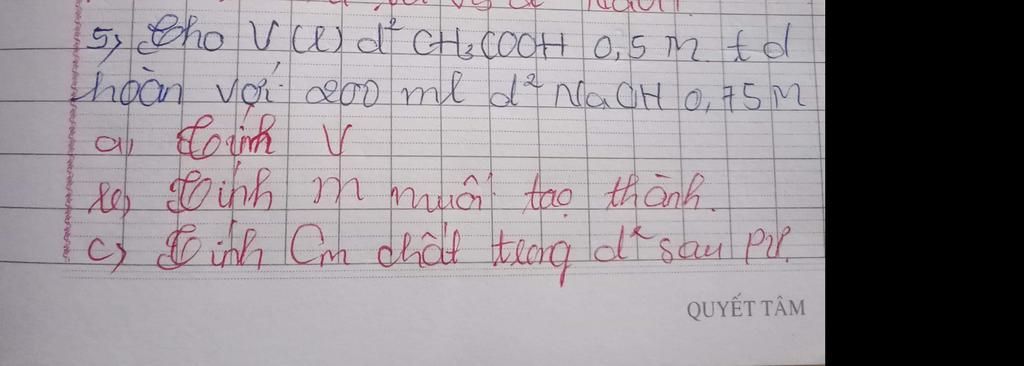 5, Cho V(l) d² CH₃COOH 0,5 M t d
hoàn với 200 ml d² NaOH 0,75M
a, Tính V
b, Tính m muối tạo thành.
c, Tính Cm chất trong d² sau pư.
QUYẾT TÂM